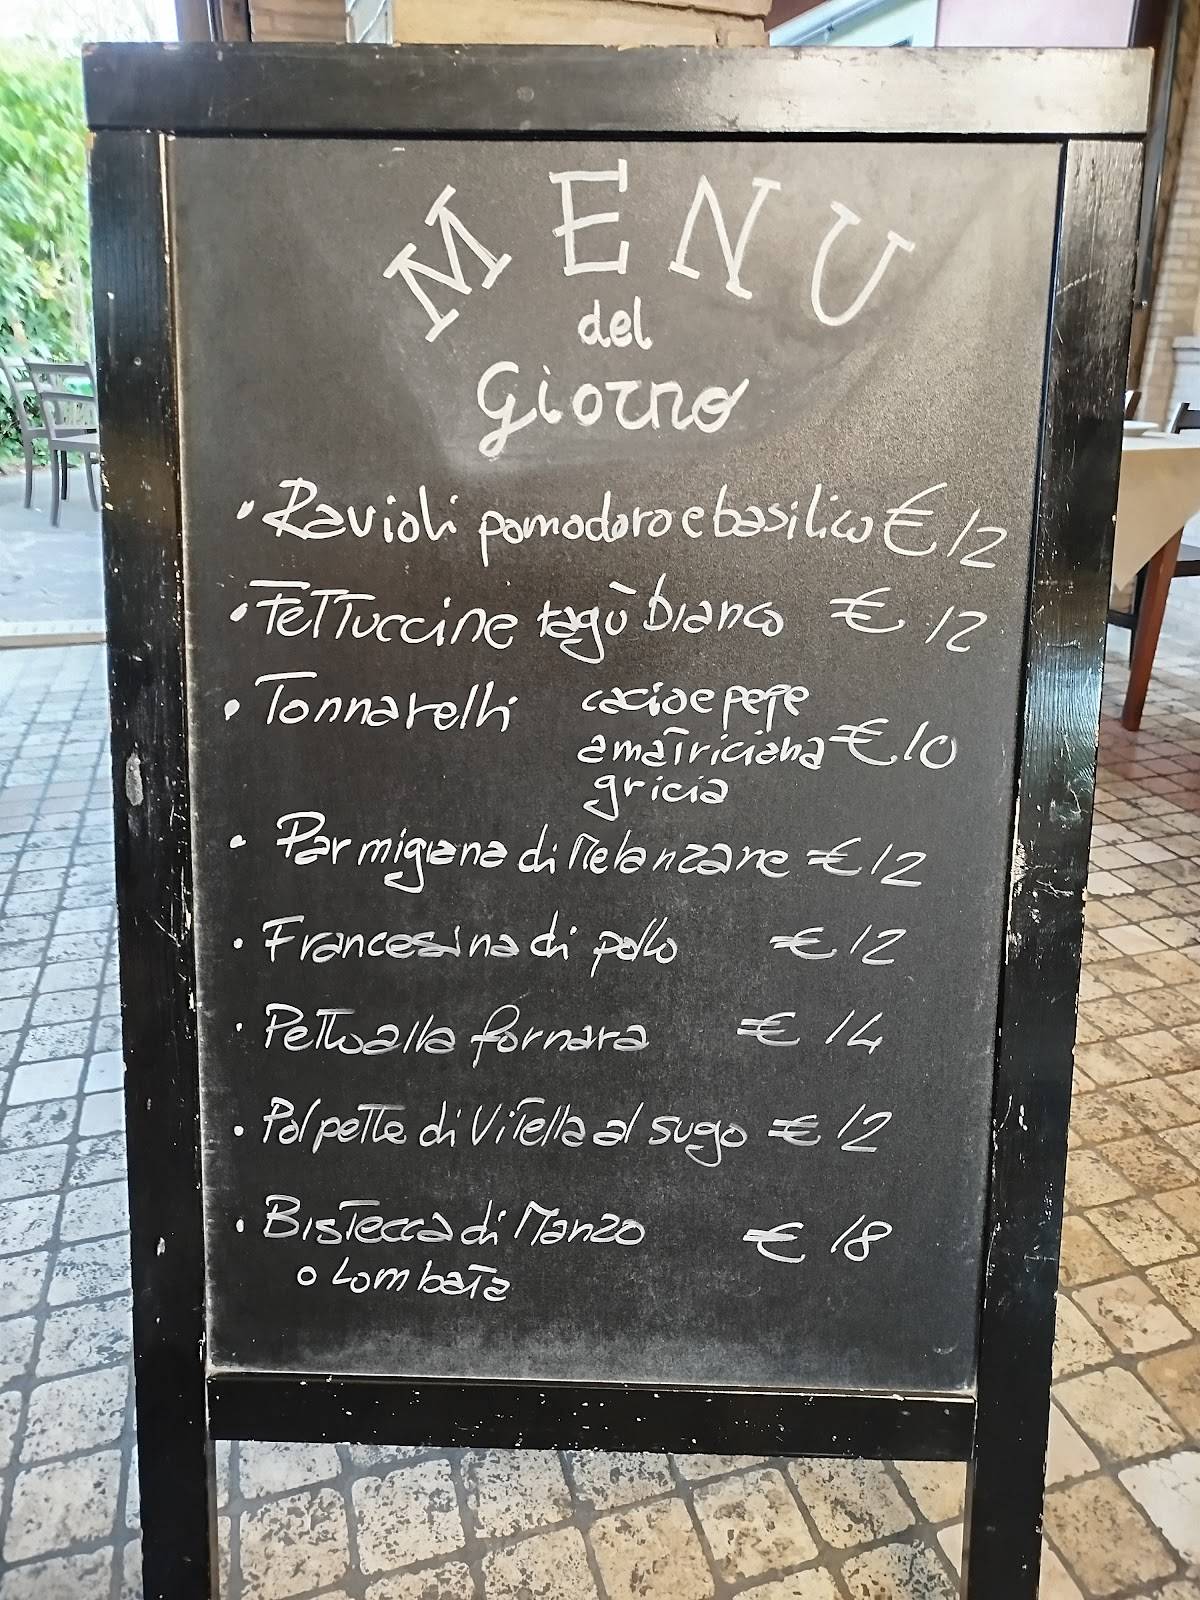 MENU
del
Giorno
• Ravioli pomodoro e basilico € 12
• Fettuccine ragù bianco € 12
• Tonnarelli cacio e pepe
amatriciana € 10
gricia
• Parmigiana di Melanzane € 12
• Francesina di pollo € 12
• Petto alla fornara € 14
• Polpette di Vitella al sugo € 12
• Bistecca di Manzo € 18
o Lombata